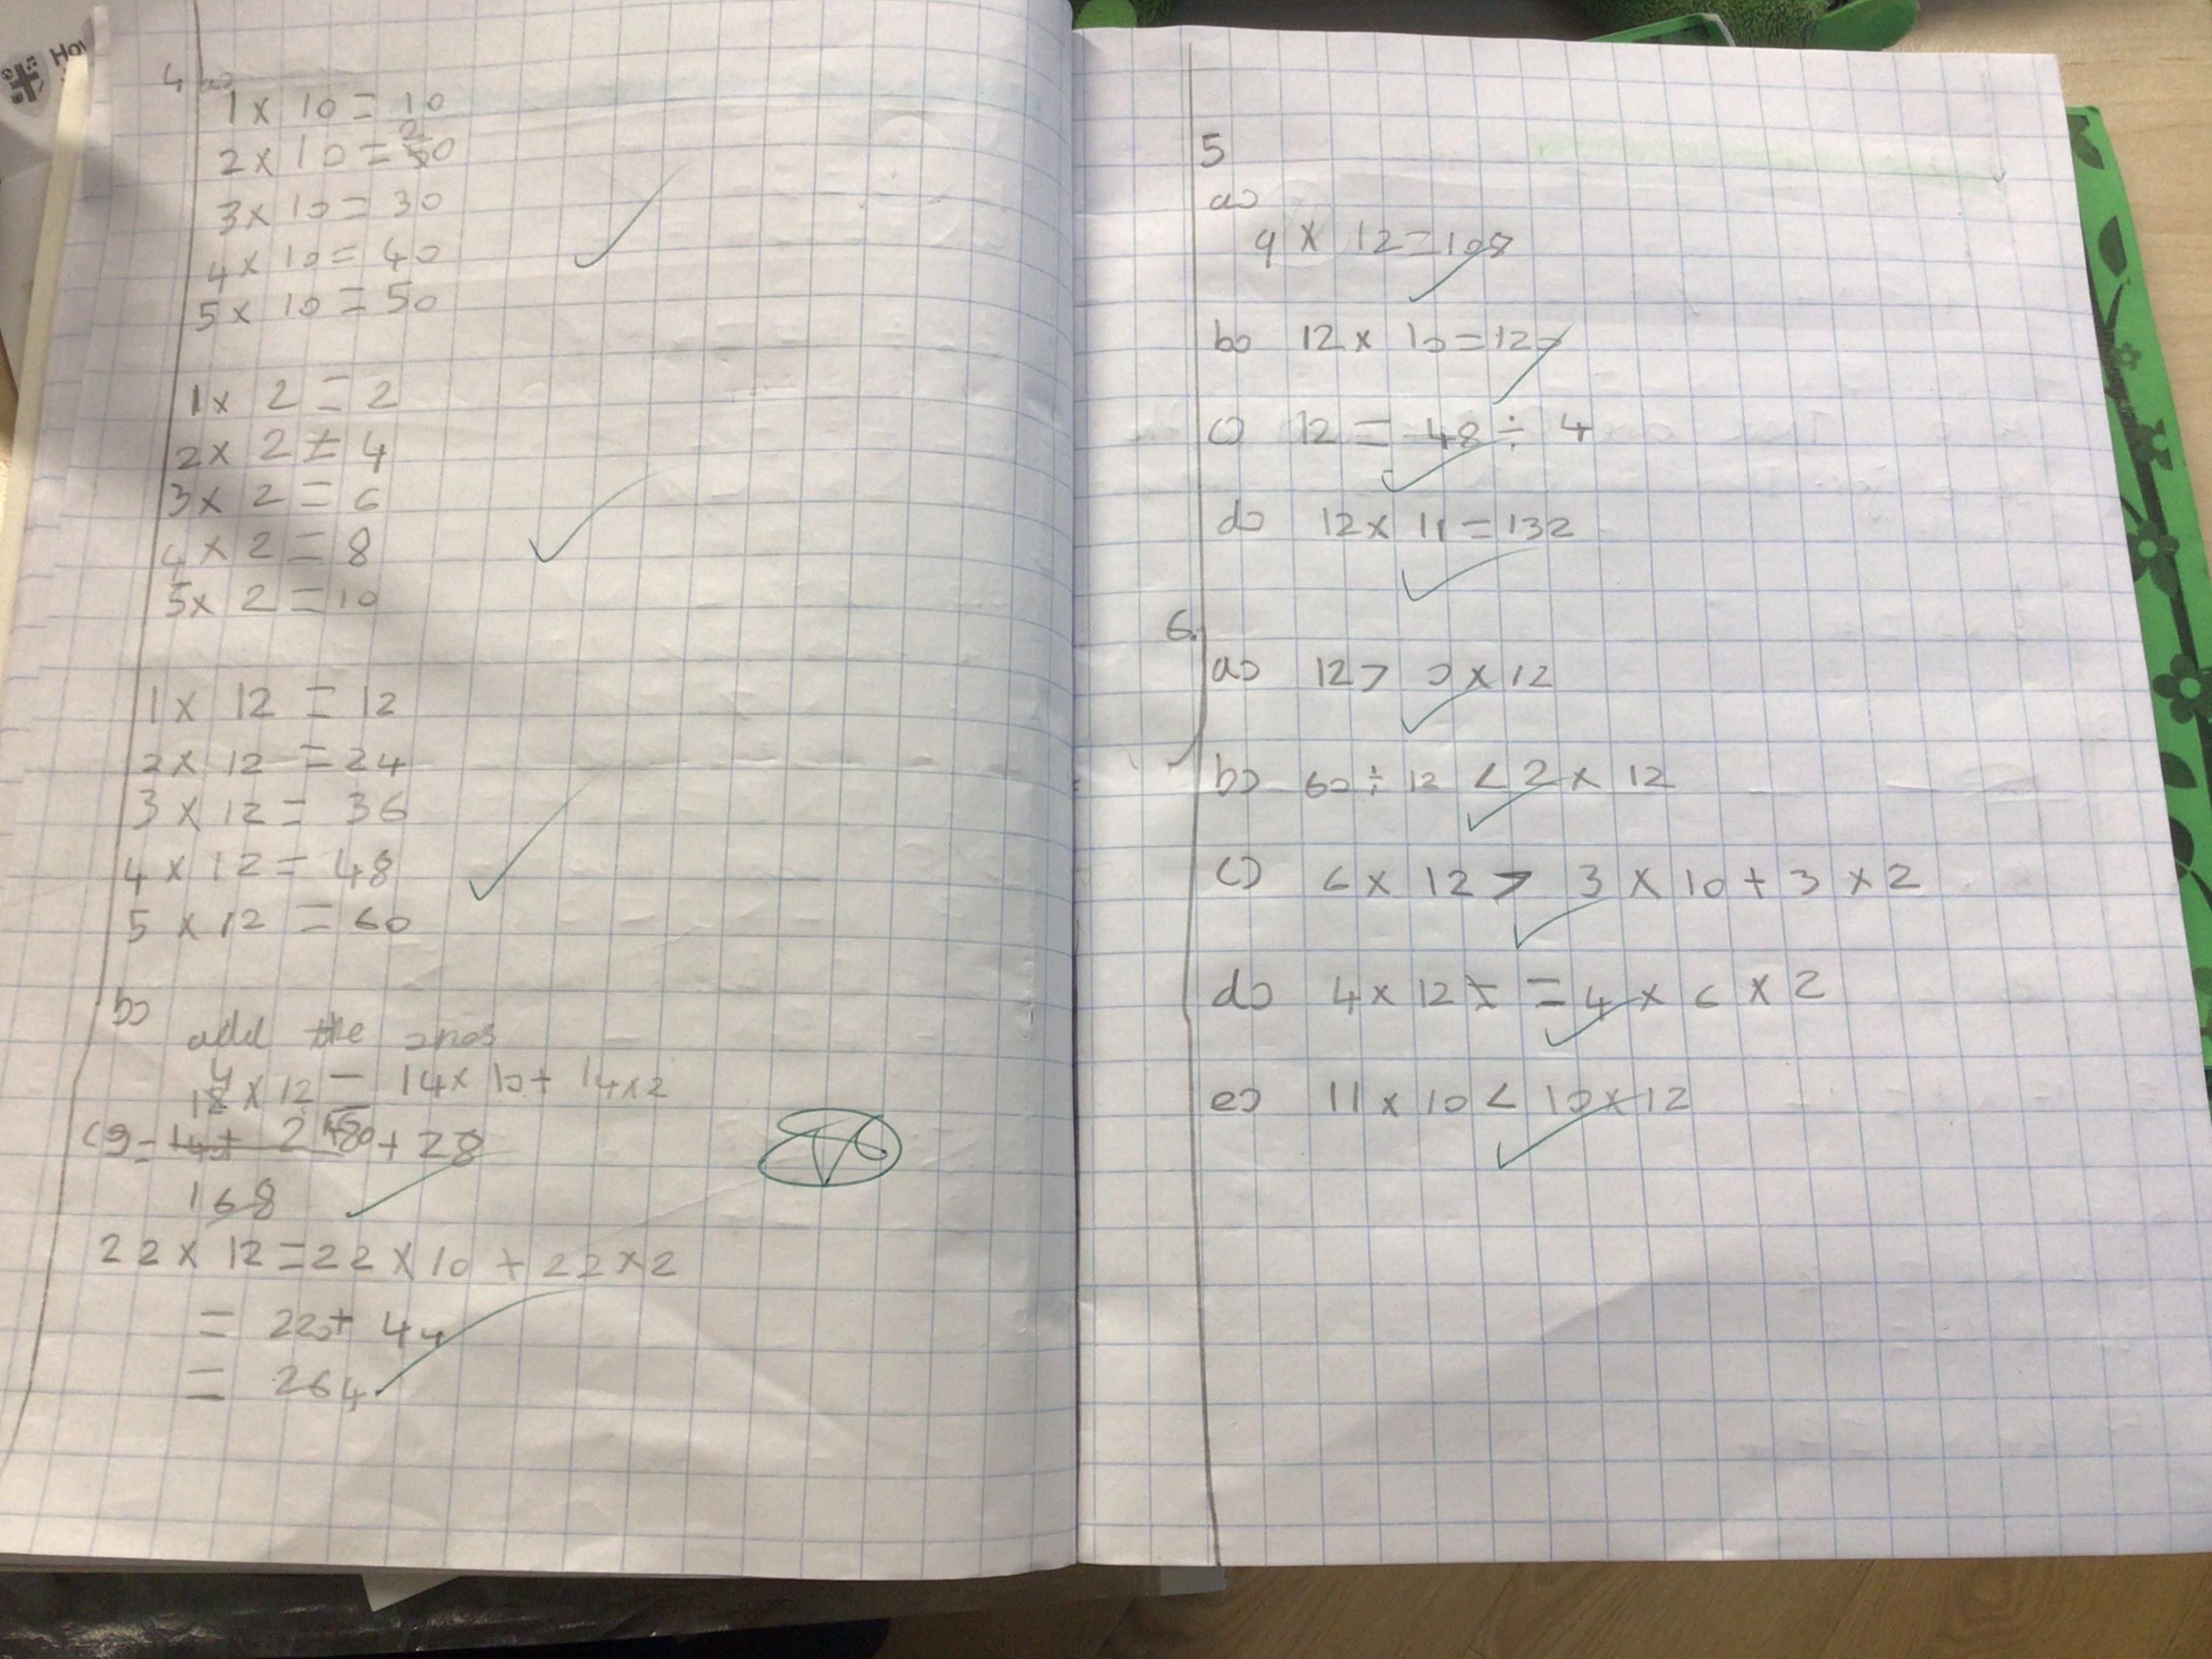 How
4 a)
1 x 10 = 10
2 x 10 = 20
3 x 10 = 30
4 x 10 = 40
5 x 10 = 50
1 x 2 = 2
2 x 2 = 4
3 x 2 = 6
4 x 2 = 8
5 x 2 = 10
1 x 12 = 12
2 x 12 = 24
3 x 12 = 36
4 x 12 = 48
5 x 12 = 60
b)
add the ones
14 x 12 = 14 x 10 + 14 x 2
c) = 140 + 28
168
22 x 12 = 22 x 10 + 22 x 2
= 220 + 44
= 264
5
a)
9 x 12 = 108
b) 12 x 10 = 120
c) 12 = 48 ÷ 4
d) 12 x 11 = 132
6.
a) 12 > 0 x 12
b) 60 ÷ 12 < 2 x 12
c) 6 x 12 > 3 x 10 + 3 x 2
d) 4 x 12 = 4 x 6 x 2
e) 11 x 10 < 10 x 12